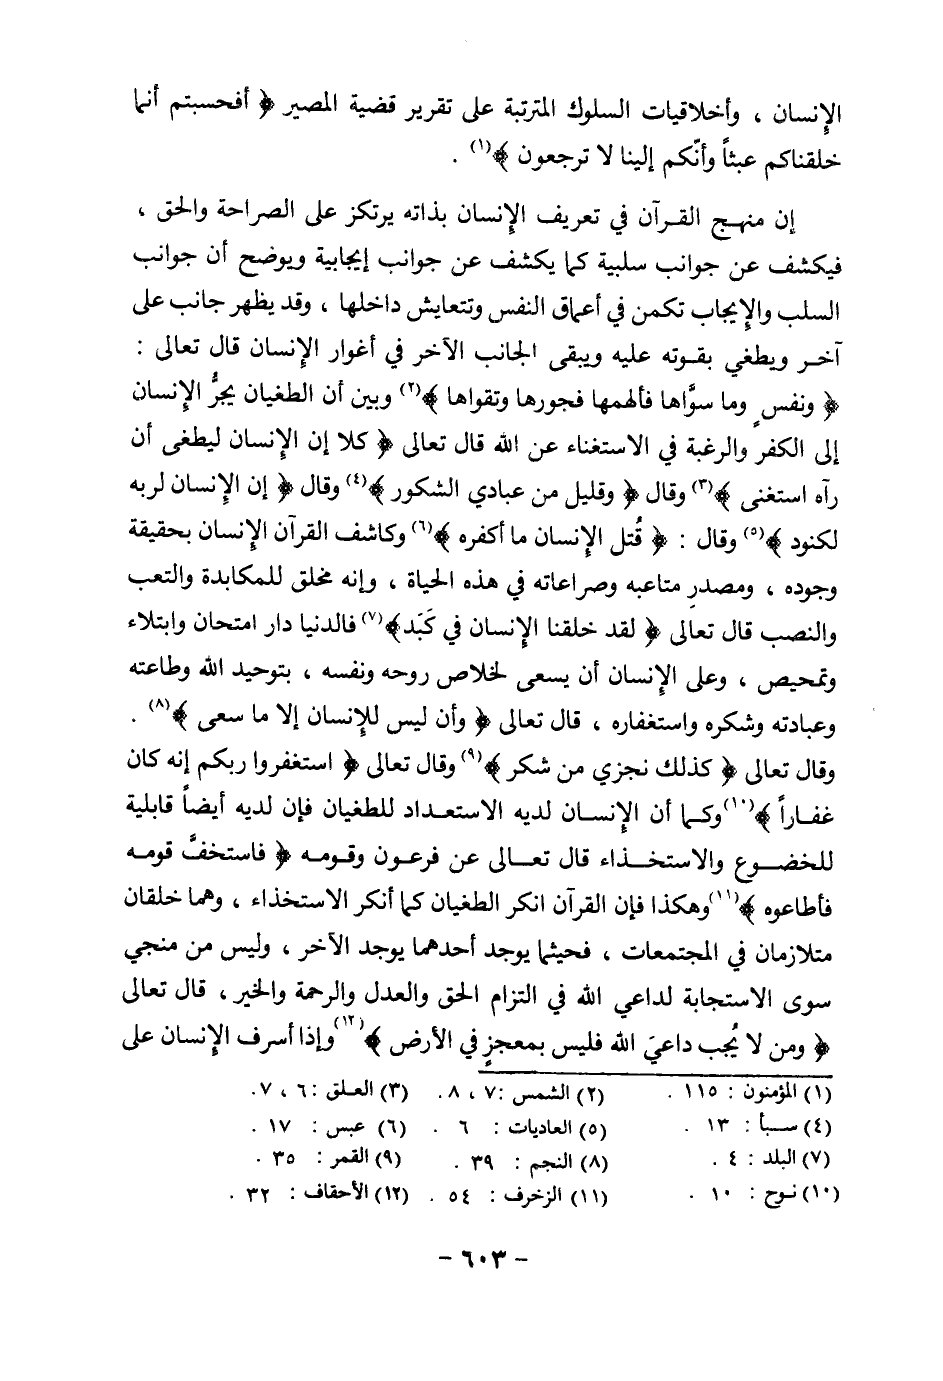 الإنسان ، وأخلاقيات السلوك المترتبة على تقرير قضية المصير ﴿ أفحسبتم أنما
خلقناكم عبثاً وأنّكم إلينا لا ترجعون ﴾(١) .
إن منهج القرآن في تعريف الإنسان بذاته يرتكز على الصراحة والحق ،
فيكشف عن جوانب سلبية كما يكشف عن جوانب إيجابية ويوضح أن جوانب
السلب والإيجاب تكمن في أعماق النفس وتتعايش داخلها ، وقد يظهر جانب على
آخر ويطغي بقوته عليه ويبقى الجانب الآخر في أغوار الإنسان قال تعالى :
﴿ ونفسٍ وما سوَّاها فألهمها فجورها وتقواها ﴾(٢) وبين أن الطغيان يجرُّ الإنسان
إلى الكفر والرغبة في الاستغناء عن الله قال تعالى ﴿ كلا إن الإنسان ليطغى أن
رآه استغنى ﴾(٣) وقال ﴿ وقليل من عبادي الشكور ﴾(٤) وقال ﴿ إن الإنسان لربه
لكنود ﴾(٥) وقال : ﴿ قُتل الإنسان ما أكفره ﴾(٦) وكاشف القرآن الإنسان بحقيقة
وجوده ، ومصدرِ متاعبه وصراعاته في هذه الحياة ، وإنه مخلق للمكابدة والتعب
والنصب قال تعالى ﴿ لقد خلقنا الإنسان في كَبَد ﴾(٧) فالدنيا دار امتحان وابتلاء
وتمحيص ، وعلى الإنسان أن يسعى لخلاص روحه ونفسه ، بتوحيد الله وطاعته
وعبادته وشكره واستغفاره ، قال تعالى ﴿ وأن ليس للإنسان إلا ما سعى ﴾(٨) .
وقال تعالى ﴿ كذلك نجزي من شكر ﴾(٩) وقال تعالى ﴿ استغفروا ربكم إنه كان
غفـاراً ﴾(١٠) وكـما أن الإنسـان لديه الاستعـداد للطغيان فإن لديه أيضاً قابلية
للخضـوع والاستخـذاء قال تعـالى عن فرعون وقومـه ﴿ فاستخفَّ قومه
فأطاعوه ﴾(١١) وهكذا فإن القرآن انكر الطغيان كما أنكر الاستخذاء ، وهما خلقان
متلازمان في المجتمعات ، فحيثما يوجد أحدهما يوجد الآخر ، وليس من منجي
سوى الاستجابة لداعي الله في التزام الحق والعدل والرحمة والخير ، قال تعالى
﴿ ومن لا يُجب داعيَ الله فليس بمعجزٍ في الأرض ﴾(١٢) وإذا أسرف الإنسان على
(١) المؤمنون : ١١٥ . (٢) الشمس : ٧ ، ٨ . (٣) العلق : ٦ ، ٧ .
(٤) سـبأ : ١٣ . (٥) العاديات : ٦ . (٦) عبس : ١٧ .
(٧) البلد : ٤ . (٨) النجم : ٣٩ . (٩) القمر : ٣٥ .
(١٠) نـوح : ١٠ . (١١) الزخرف : ٥٤ . (١٢) الأحقاف : ٣٢ .
- ٦٠٣ -